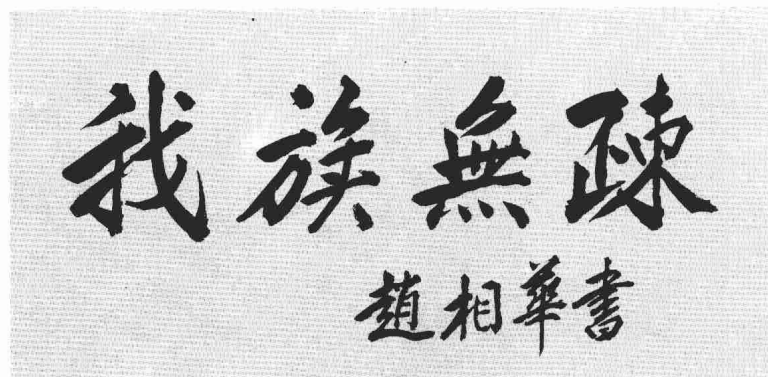 我族無疎
趙相華書